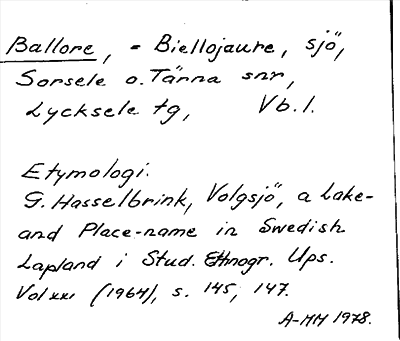 Ballore, = Biellojaure, sjö,
Sorsele o. Tärna snr,
Lycksele tg, Vb. l.
Etymologi:
G. Hasselbrink, Volgsjö, a Lake-
and Place-name in Swedish
Lapland i Stud. Ethnogr. Ups.
Vol xxi (1964), s. 145, 147.
A-MM 1978.